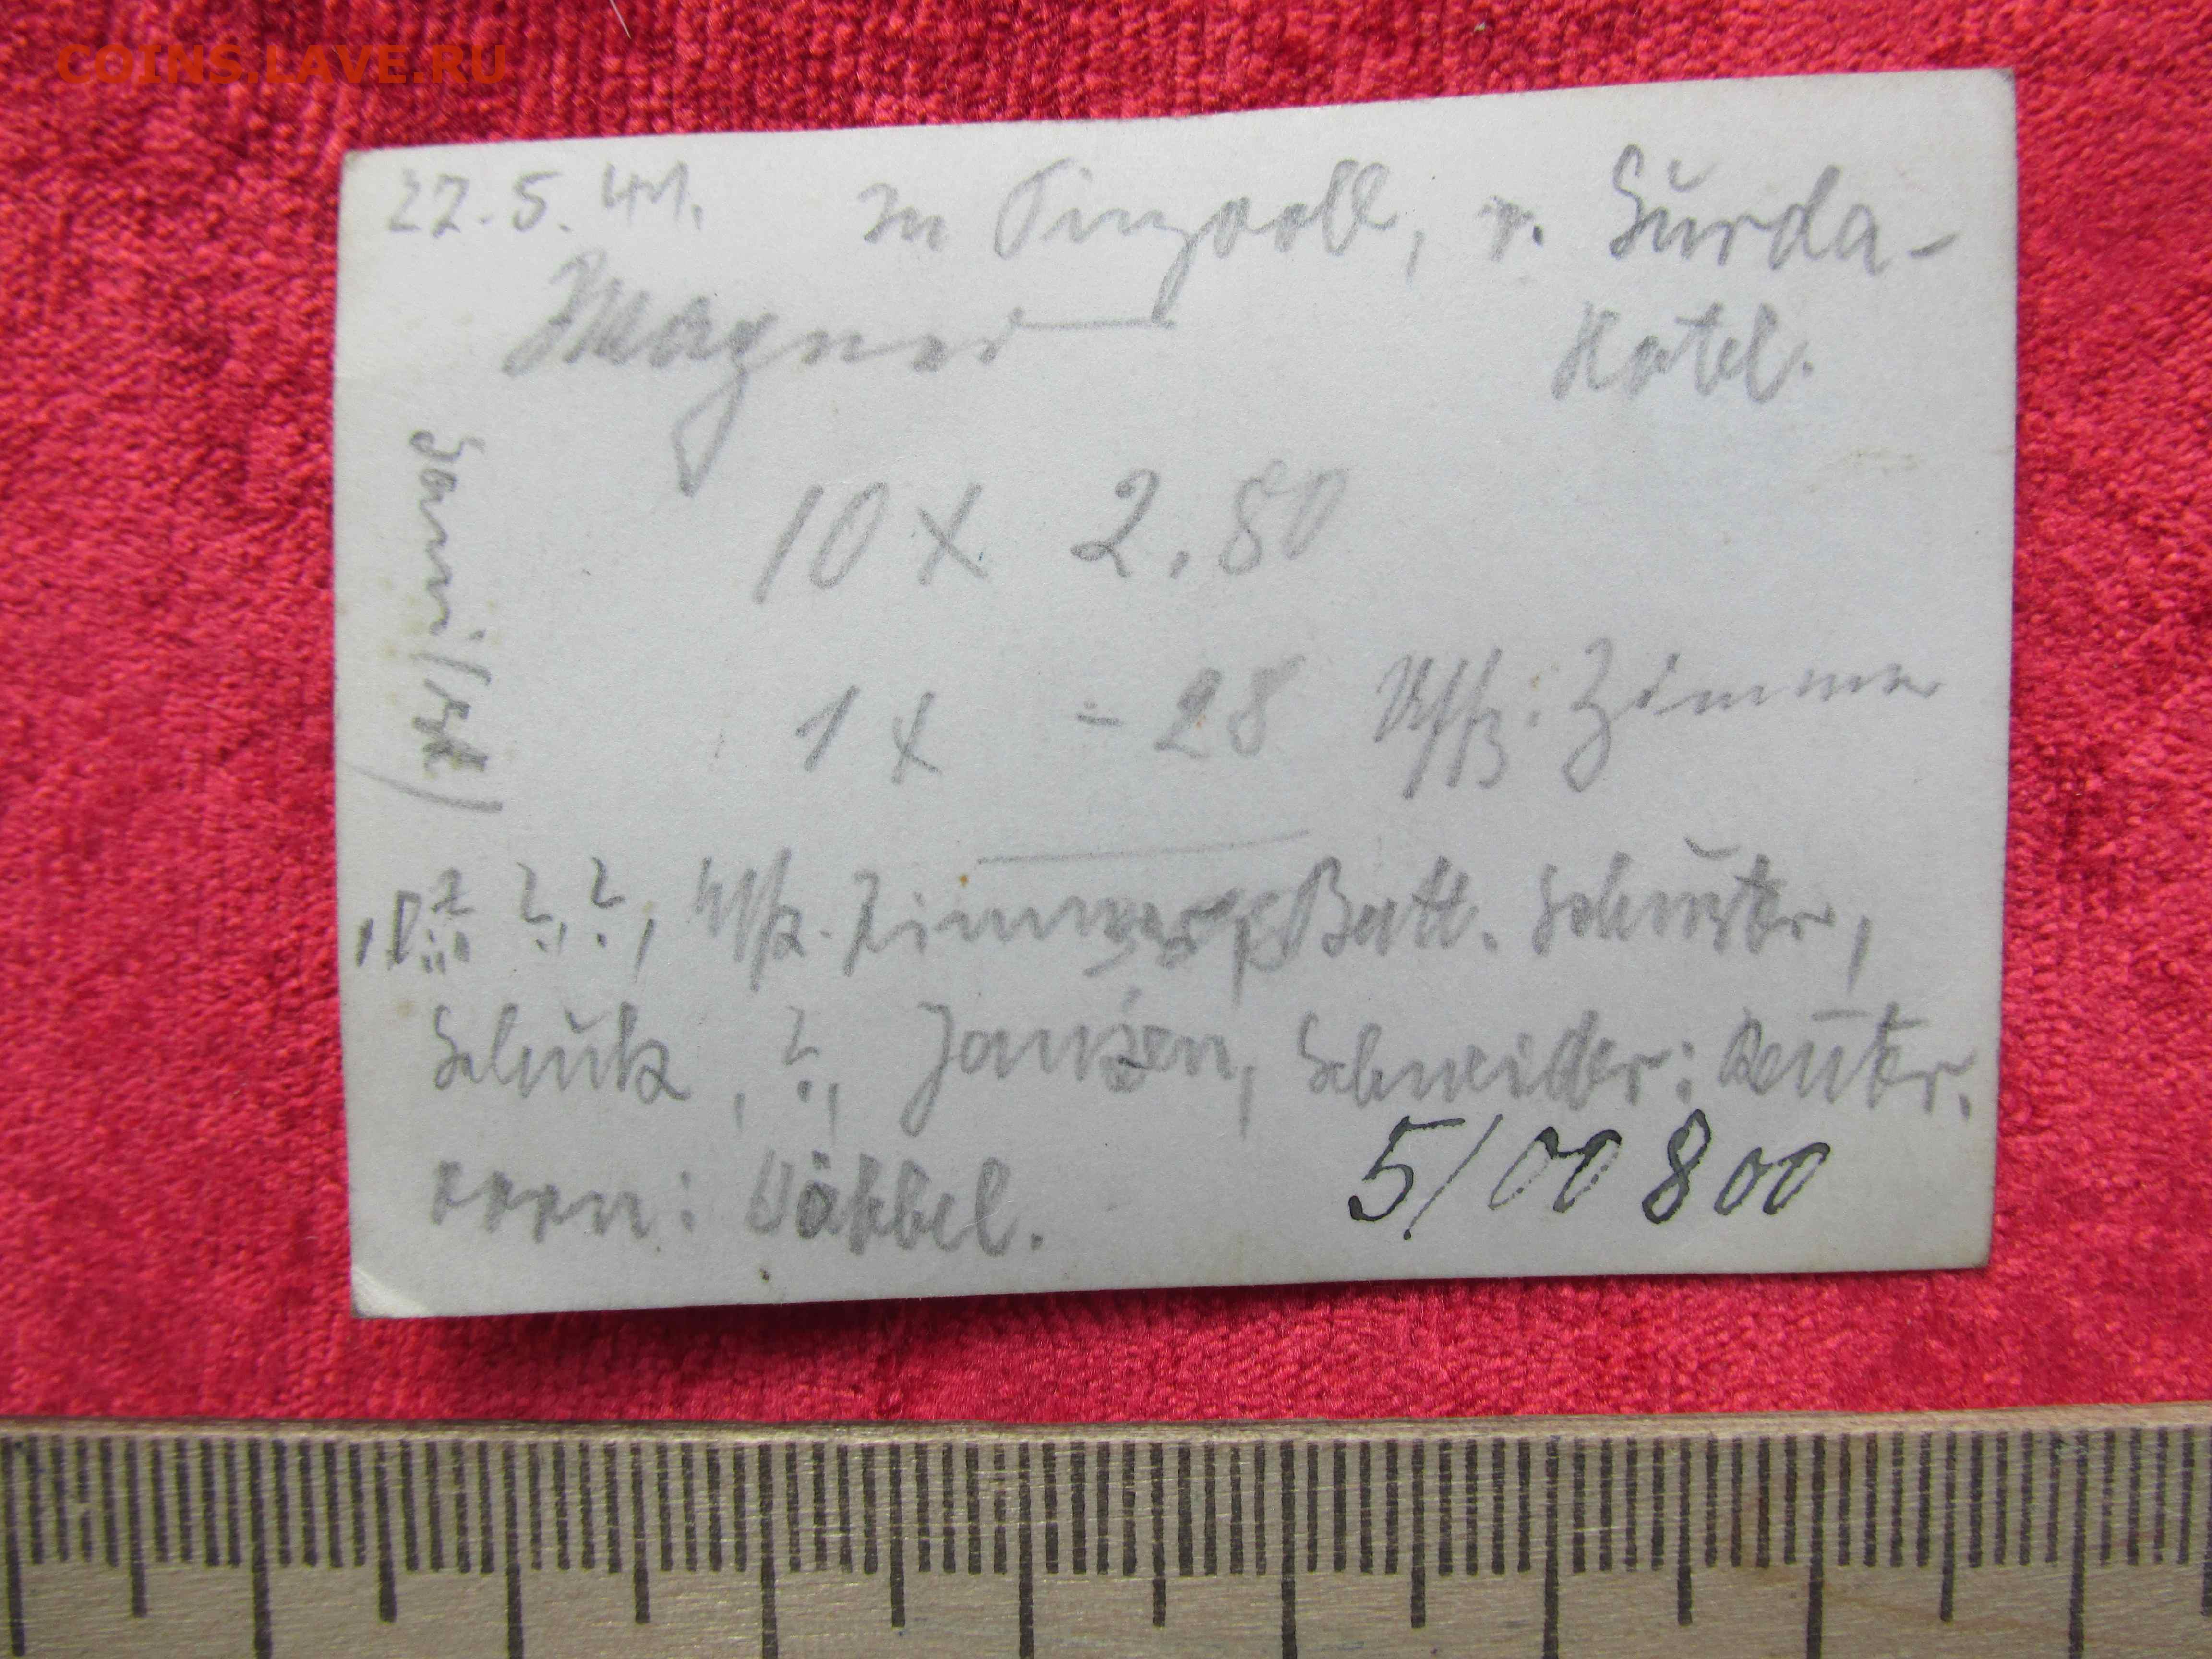 COINS.LAVE.RU
22.5.41. In Tingvoll, v. Gürda-
Hotel.
Magner
10 x 2.80
1 x -28 Uffz. Zimmer
? ?, ?, Uffz. Zimmer, Batt. Schuster,
Schütz, ?, Jansen, Schneider; Reuter.
vorn: Wöbbel.
5/00800